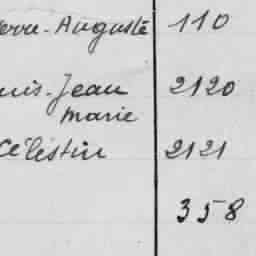 erre-Auguste 110
uis-Jean 2120
marie
Célestin 2121
358